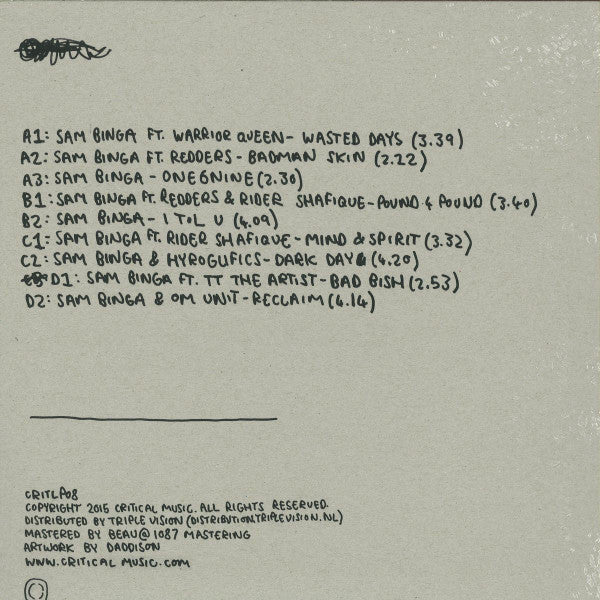 A1: SAM BINGA FT. WARRIOR QUEEN - WASTED DAYS (3.39)
A2: SAM BINGA FT. REDDERS - BADMAN SKIN (2.22)
A3: SAM BINGA - ONE6NINE (2.30)
B1: SAM BINGA FT. REDDERS & RIDER SHAFIQUE - POUND 4 POUND (3.40)
B2: SAM BINGA - I TOL U (4.09)
C1: SAM BINGA FT. RIDER SHAFIQUE - MIND & SPIRIT (3.32)
C2: SAM BINGA & HYROGLIFICS - DARK DAY (4.20)
D1: SAM BINGA FT. TT THE ARTIST - BAD BISH (2.53)
D2: SAM BINGA & OM UNIT - RECLAIM (4.14)
CRITLP08
COPYRIGHT 2015 CRITICAL MUSIC. ALL RIGHTS RESERVED.
DISTRIBUTED BY TRIPLE VISION (DISTRIBUTION.TRIPLEVISION.NL)
MASTERED BY BEAU@1087 MASTERING
ARTWORK BY DADDISON
WWW.CRITICALMUSIC.COM